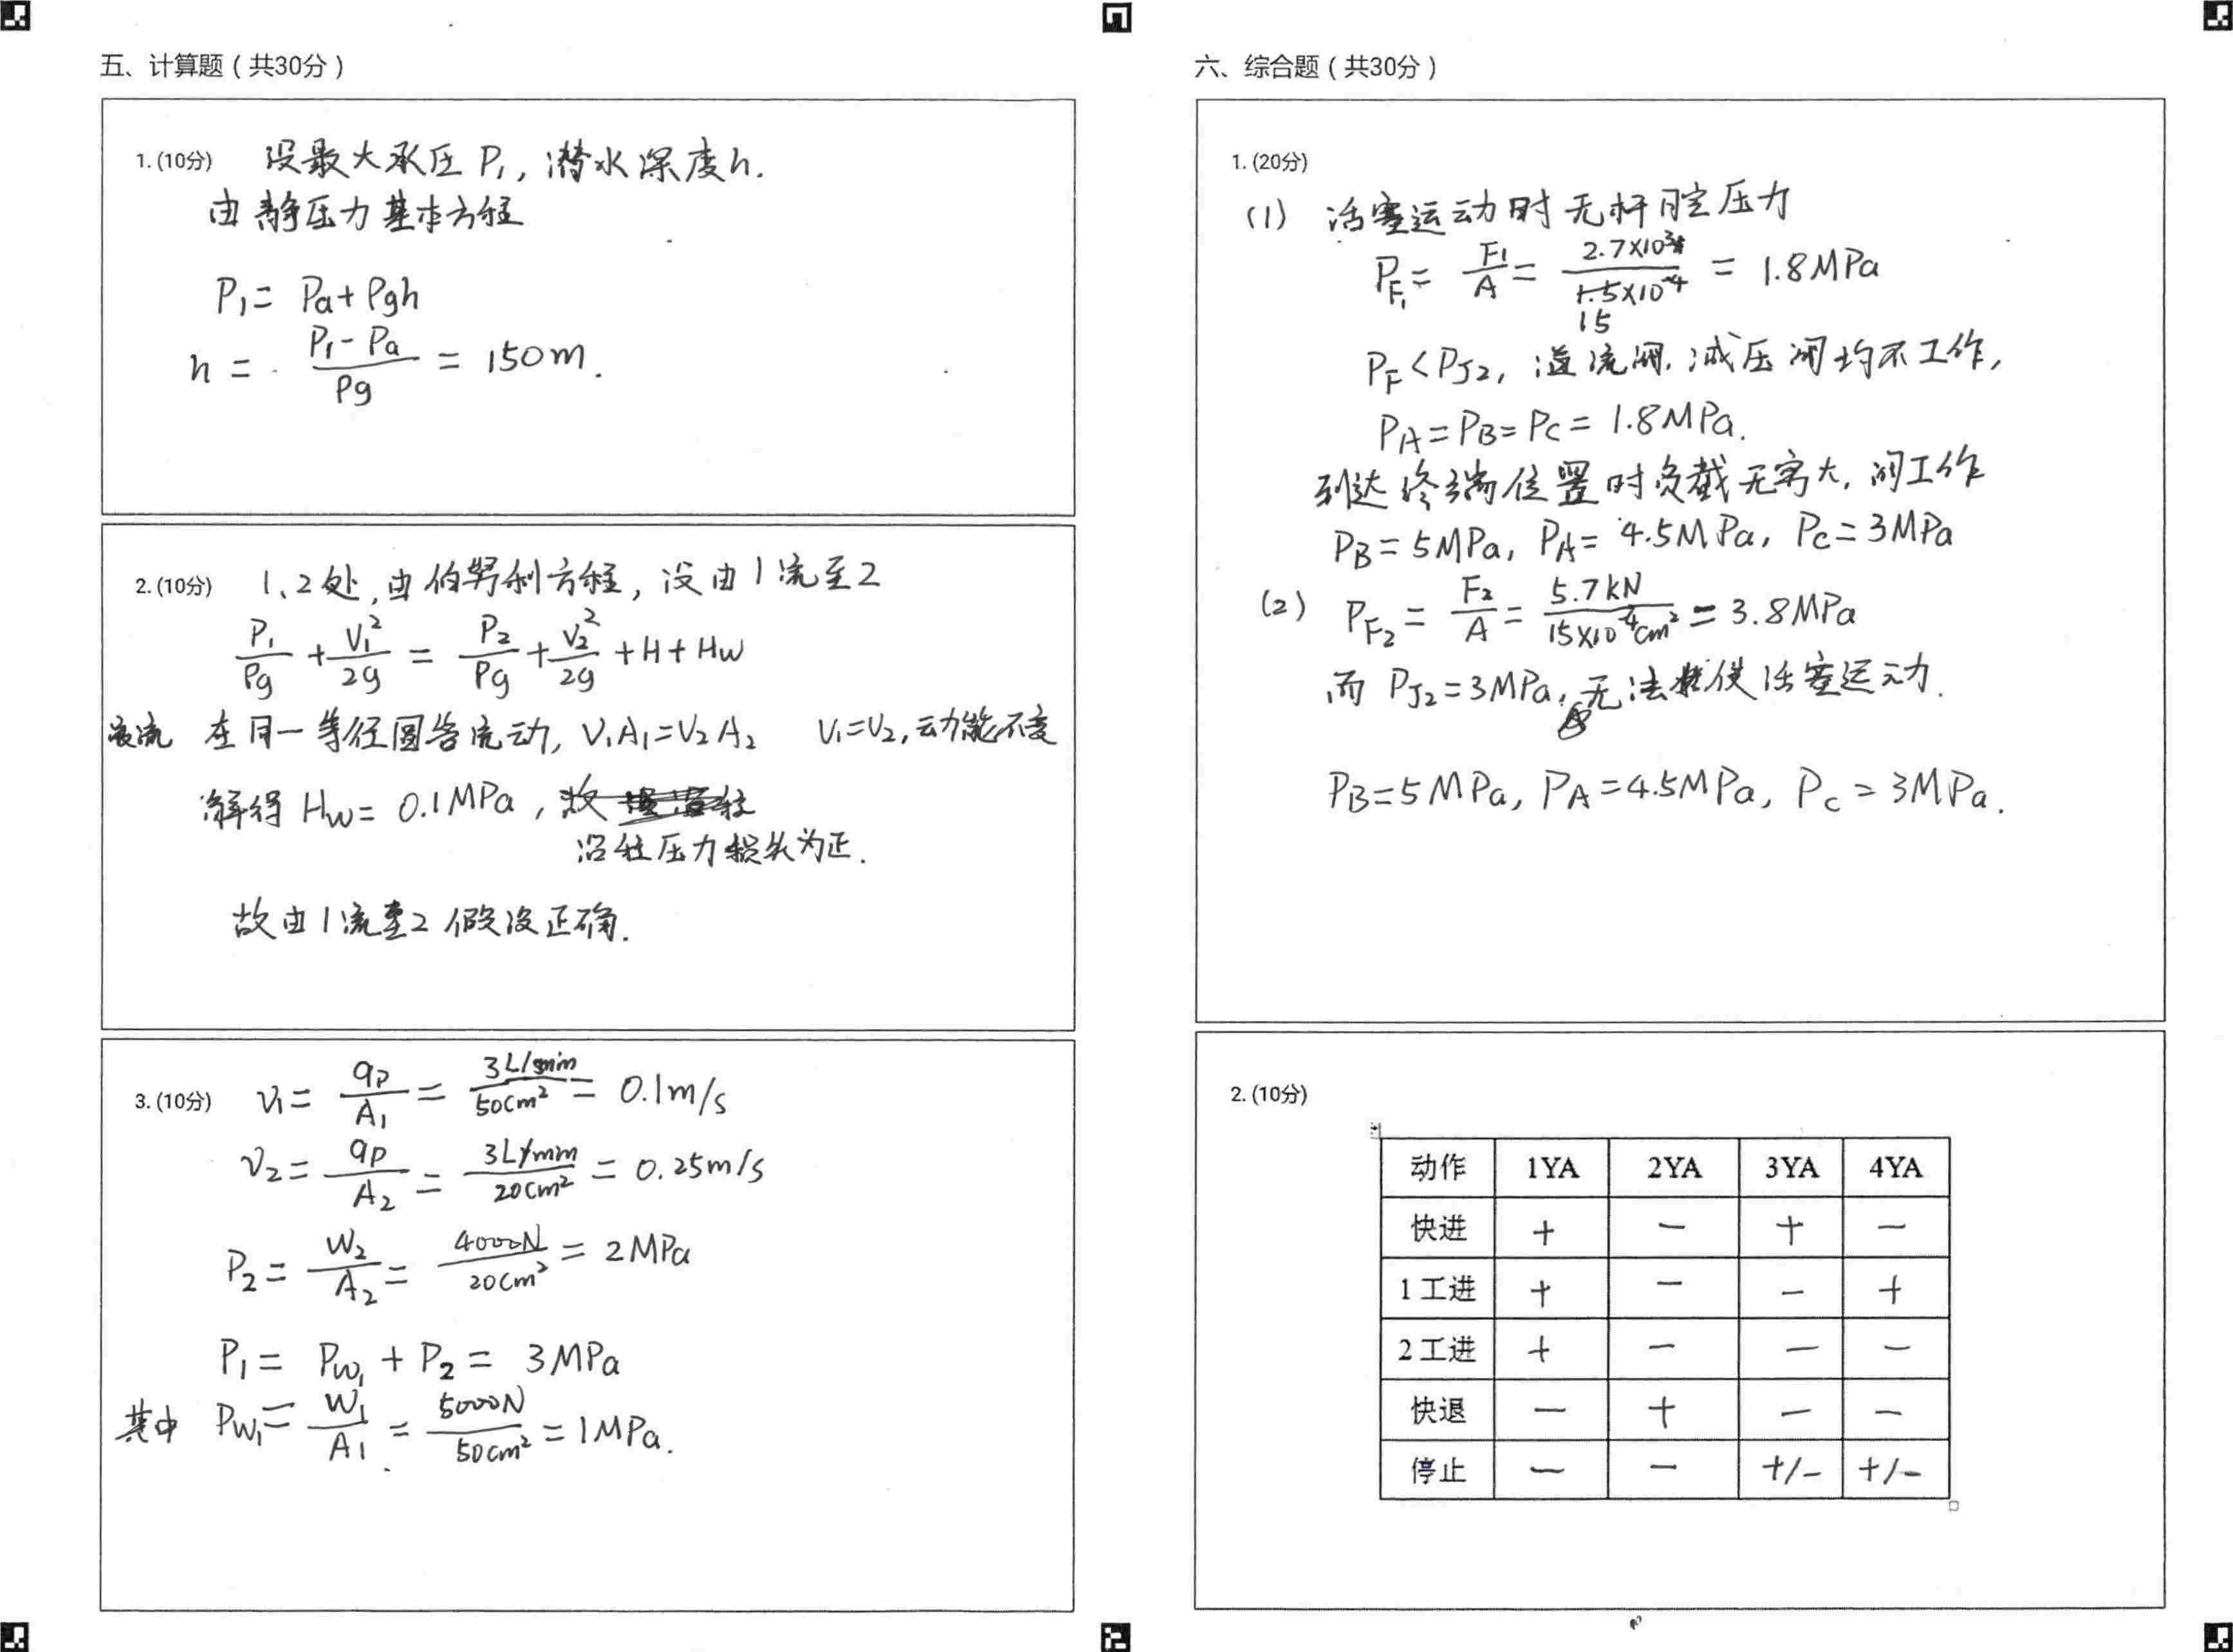 五、计算题（共30分）
1.(10分) 设最大承压 P₁, 潜水深度h.
由静压力基本方程
P₁= Pa+ρgh
h = (P₁-Pa)/(ρg) = 150m.
2.(10分) 1、2处,由伯努利方程, 设由1流至2
P₁/(ρg) + V₁²/(2g) = P₂/(ρg) + V₂²/(2g) + H + Hw
液流 在同一等径圆管流动, V₁A₁=V₂A₂ V₁=V₂,动能不变
解得 Hw= 0.1MPa, 故
沿程压力损失为正.
故由1流至2假设正确.
3.(10分) v₁= qp/A₁ = 3L/min/50cm² = 0.1m/s
v₂= qp/A₂ = 3L/min/20cm² = 0.25m/s
P₂= W₂/A₂ = 4000N/20cm² = 2MPa
P₁= Pw₁ + P₂ = 3MPa
其中 Pw₁= W₁/A₁ = 5000N/50cm² = 1MPa.
六、综合题（共30分）
1.(20分)
(1) 活塞运动时无杆腔压力
P_F₁= F₁/A = 2.7×10³/15×10⁻⁴ = 1.8MPa
P_F<P_J2, 溢流阀,减压阀均不工作,
P_A=P_B=P_C= 1.8MPa.
到达终端位置时负载无穷大, 阀工作
P_B=5MPa, P_A= 4.5MPa, P_C=3MPa
(2) P_F₂ = F₂/A = 5.7kN/15×10⁻⁴cm² = 3.8MPa
而 P_J2=3MPa, 无法使活塞运动.
P_B=5MPa, P_A=4.5MPa, P_C=3MPa.
2.(10分)
动作 1YA 2YA 3YA 4YA
快进 + - + -
1工进 + - - +
2工进 + - - -
快退 - + - -
停止 - - +/- +/-